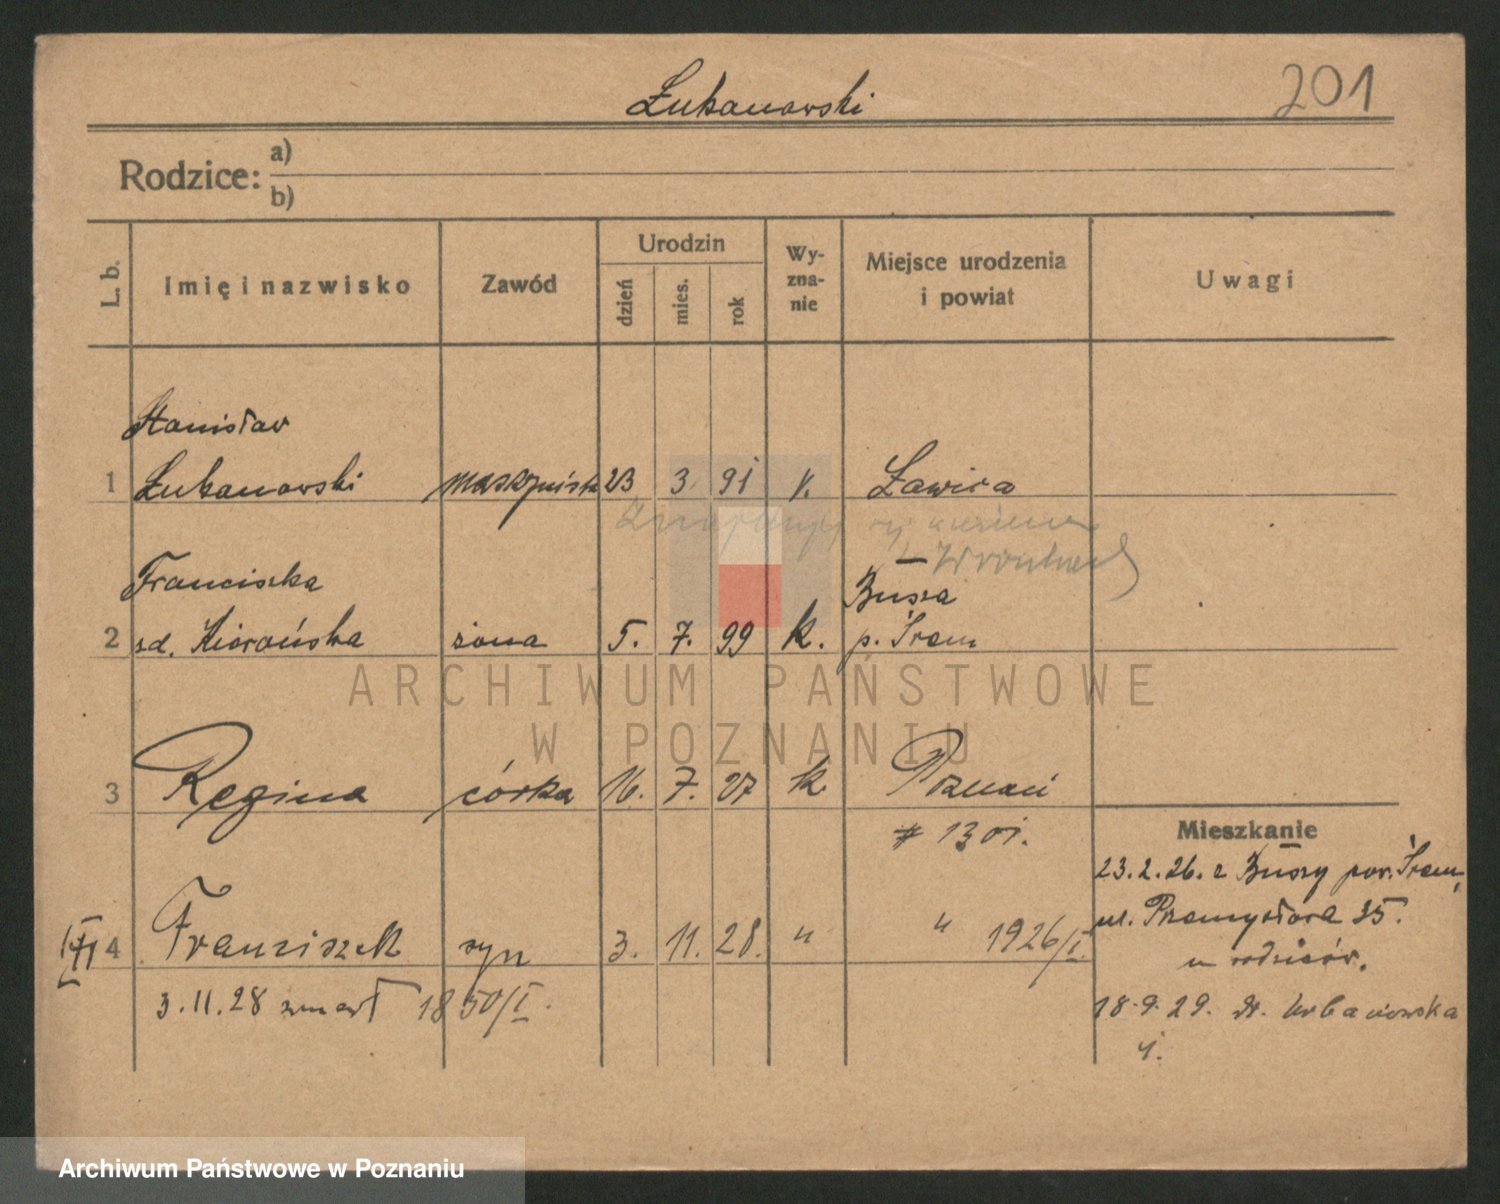 Łukanowski
201
Rodzice: a)
b)
L. b.
Imię i nazwisko
Zawód
Urodzin
dzień
mies.
rok
Wy-
zna-
nie
Miejsce urodzenia
i powiat
Uwagi
Stanisław
1 Łukanowski maszynista 23 3. 91 k. Ławica
Franciszka
2 zd. żona 5. 7. 99 k. p. Śrem
ARCHIWUM PAŃSTWOWE
W POZNANIU
3 Regina córka 16. 7. 27 k Poznań
# 13 01.
Mieszkanie
23.2.26. z pow. Śrem,
4 Franciszek syn 3. 11. 28. " " 1926/I.
ul. Przemysłowa 35.
u rodziców.
3.11.28 zmarł 1850/I.
18.9.29. Urbanowska
4.
Archiwum Państwowe w Poznaniu